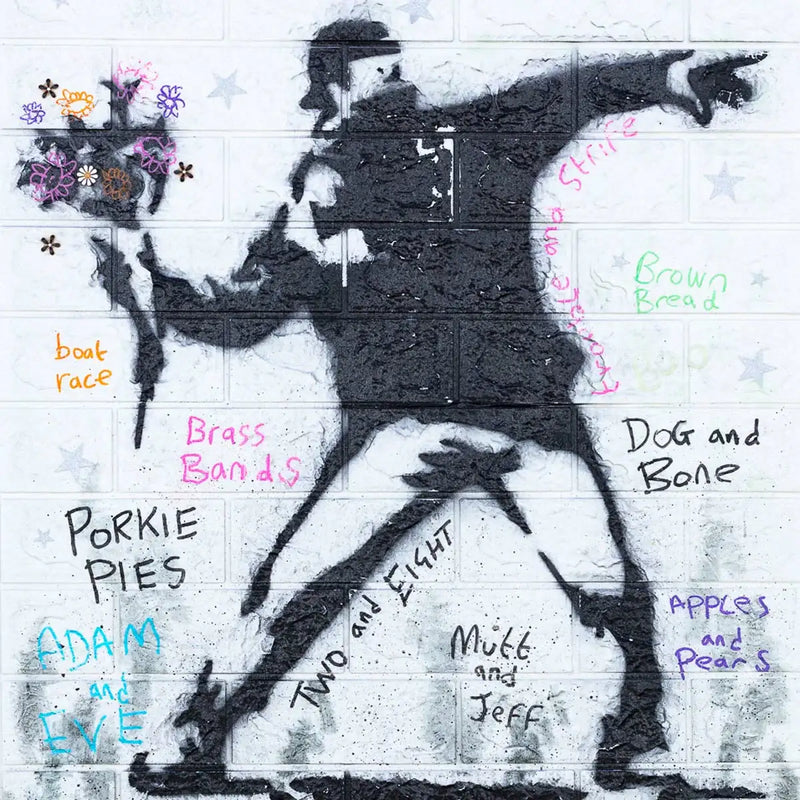 Trouble and Strife
Brown
Bread
boat
race
Brass
Bands
DOG and
Bone
PORKIE
PIES
TWO and EIGHT
APPLES
and
Pears
ADAM
and
EVE
Mutt
and
Jeff